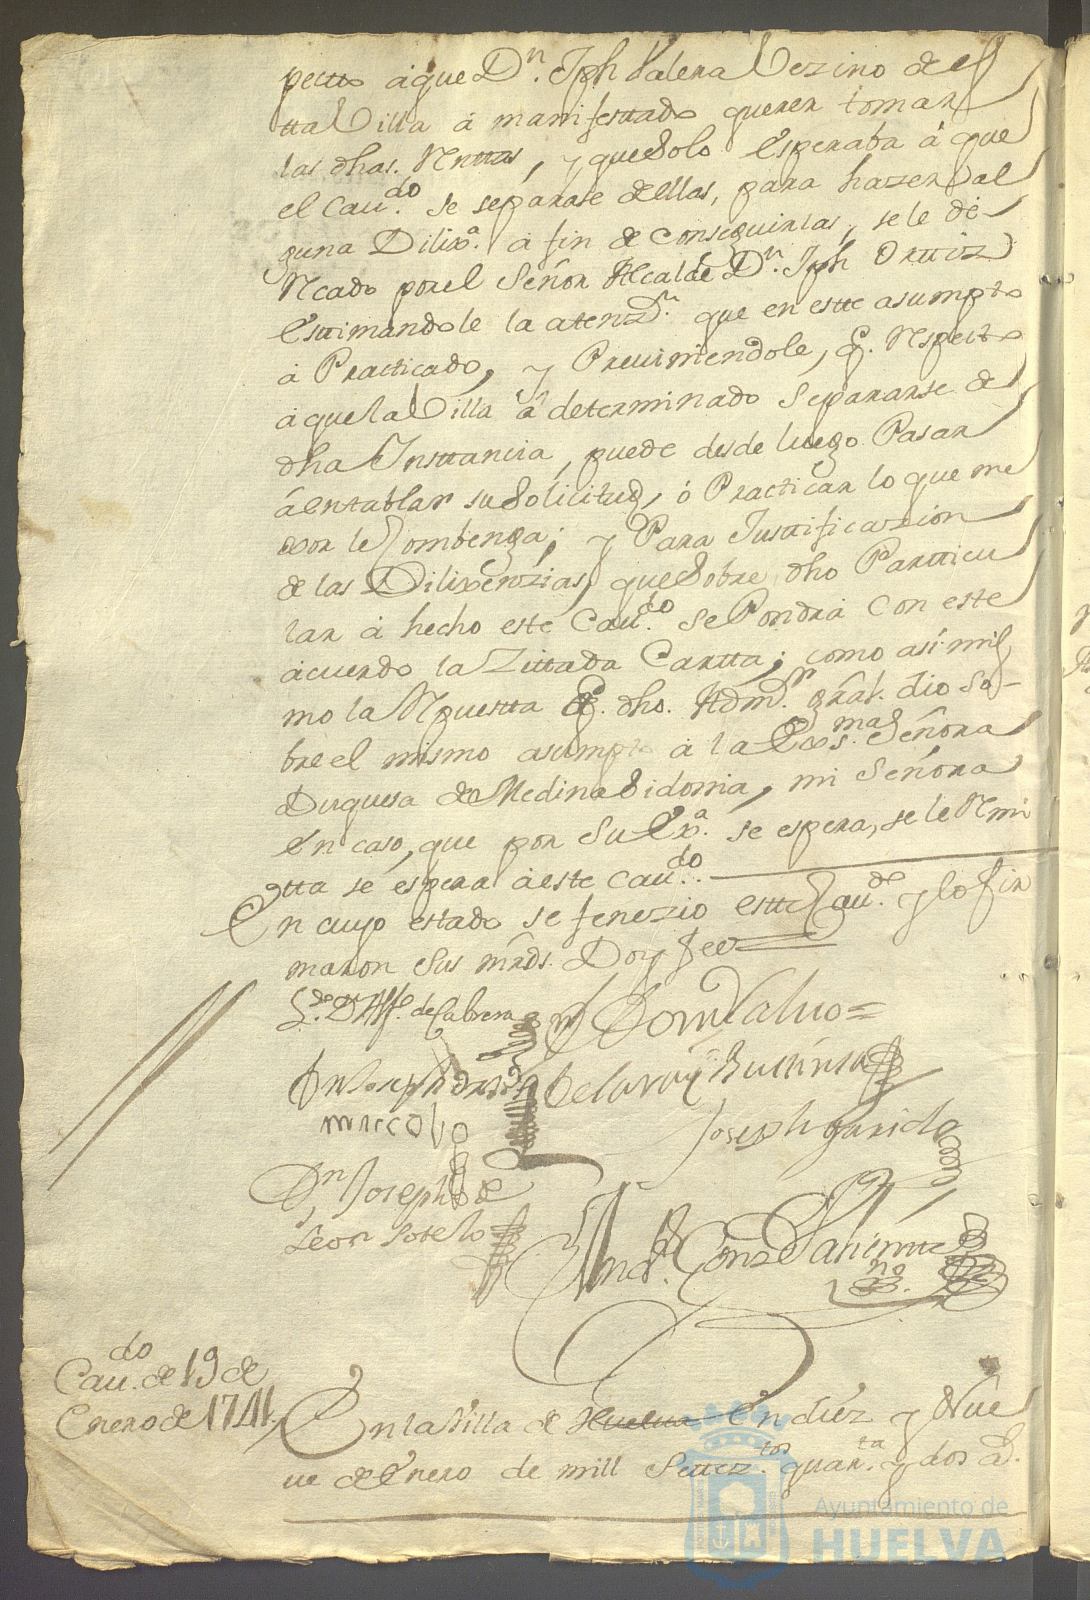 pectto á que Dn. Jph Valera Vezino de es
tta Villa á manifesttado querer tomar
las dhas. Rnttas, y que Solo Esperaba á que
el Caudo. se separase dellas, para hazer al
guna Dilixa. á fin de conseguirlas, se le dé
Rcado por el Señor Alcalde Dn. Jph Orttiz
Esttimandole la atenzn. que en estte asumpto
á Practicado, y Previniendole, q. Rspecto
á que la Villa á determinado Separarse de
dha Insttancia, puede desde luego Pasar
á entablar su Solicitud, ó Practicar lo que me
xor le Combenga; y Para Justtificazion
de las Dilixenzias, que Sobre dho Partticu
lar á hecho este Caudo. Se Pondrá Con este
acuerdo la Zittada Cartta; como asimis
mo la Rpuestta q. dho. Admor. gral. dio So-
bre el mismo asumpto á la Exsma. Señora
Duquesa de Medina Sidonia, mi Señora
En caso, que por Su Exa. se espera, se le Rmi
tta se espera á este Caudo.
En cuyo estado se fenezio estte Caudo. y lo fir
maron Sus mrds. Doy fee
Ldo. Dn Alfo. de Cabrera
Dn Joseph Ortiz
Joseph garrido
Dn Joseph de
Leon Sotelo
Caudo. de 19 de
Enero de 1741.
En la Villa de Huelva En diez y Nue
ue de Enero de mill Settez.tos quar.ta y dos a.s
Ayuntamiento de
HUELVA